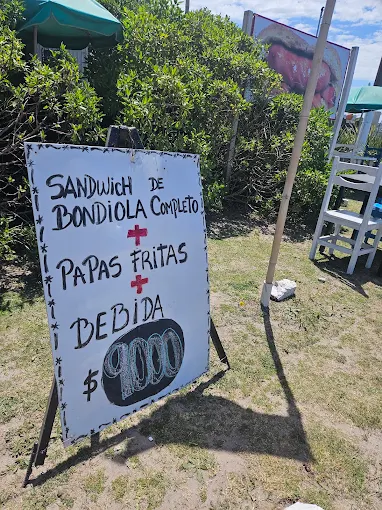 SANDWICH DE
BONDIOLA COMPLETO
+
PAPAS FRITAS
+
BEBIDA
$ 9000